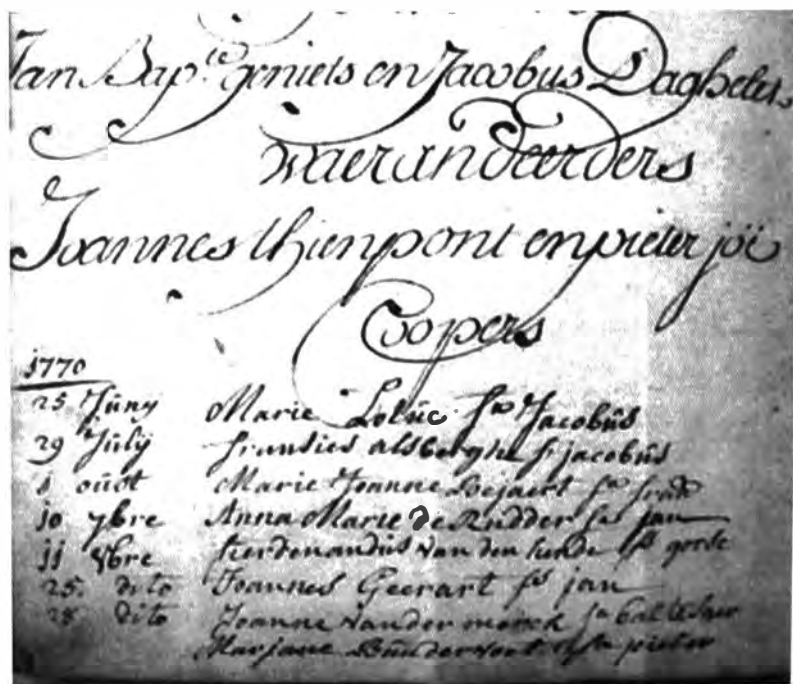 Jan Bap.te geniets en Jacobus Daghelet
waerandeerders
Joannes thienpont en pieter joi
Coopers
1770
25 Juny Marie Loluc fa Jacobus
29 July fransies alsberghe fs jacobus
1 oust Marie Joanne fa
10 7bre Anna Marie de Rudder fa jan
11 8bre ferdenandus van den hende fs
25. dito Joannes Geerart fs jan
28 dito Joanne vander fa
Marjane pieter